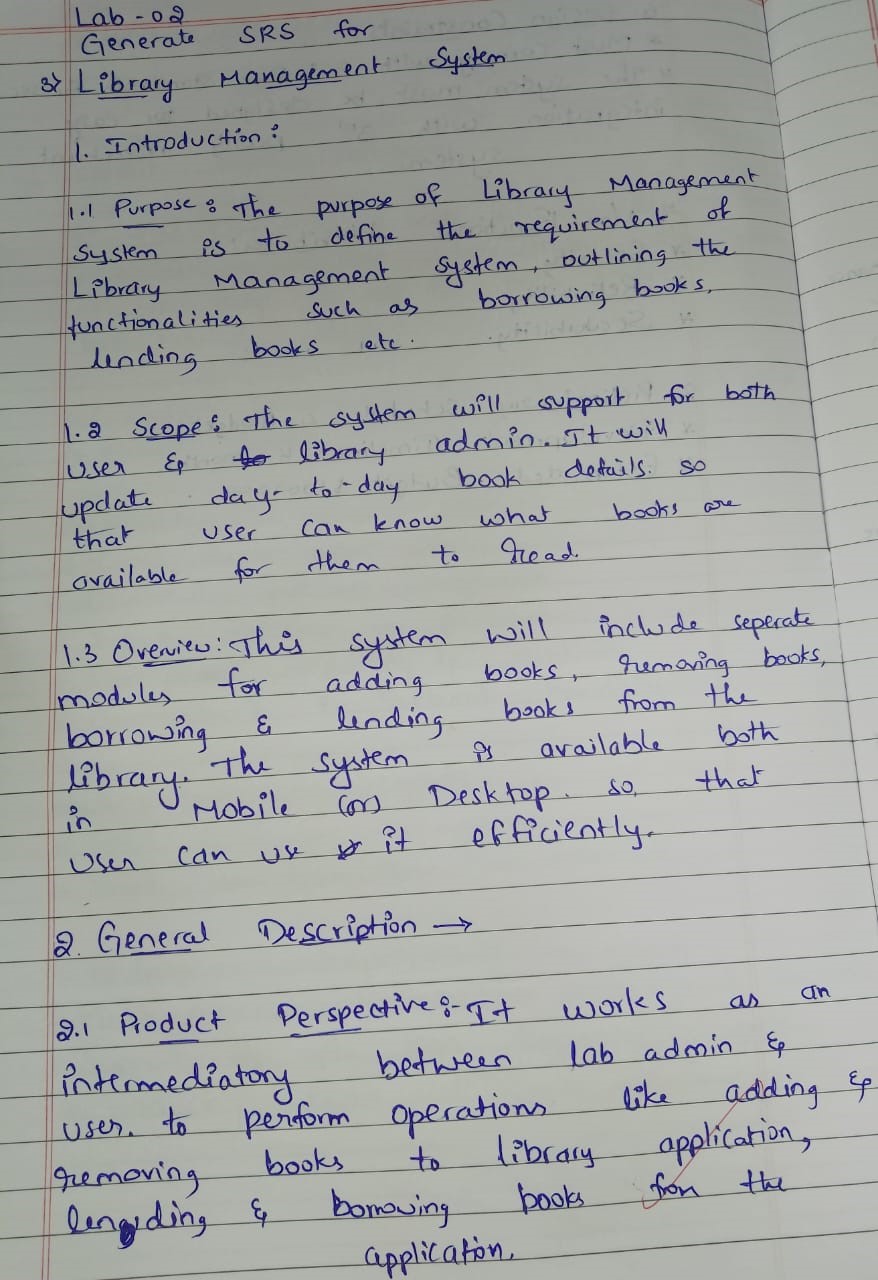 Lab - 02
Generate SRS for
3) Library Management System
1. Introduction :
1.1 Purpose : The purpose of Library Management
System is to define the requirement of
Library Management System, outlining the
functionalities such as borrowing books,
lending books etc.
1.2 Scope : The system will support for both
user & library admin. It will
update day-to-day book details. so
that user can know what books are
available for them to read.
1.3 Overview : This system will include seperate
modules for adding books, removing books,
borrowing & lending books from the
library. The system is available both
in Mobile (or) Desktop. so that
user can use it efficiently.
2. General Description →
2.1 Product Perspective :- It works as an
intermediatory between lab admin &
user. to perform operations like adding &
removing books to library application,
lending & borrowing books from the
application.